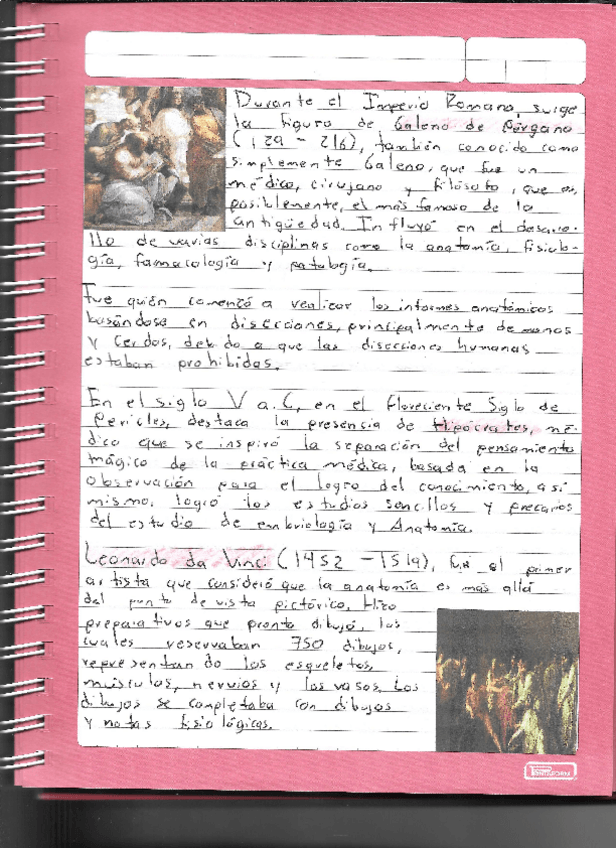 Durante el Imperio Romano, surge
la figura de Galeno de Pérgano
(129 - 216), también conocido como
simplemente Galeno, que fue un
médico, cirujano y filósofo, que es,
posiblemente, el más famoso de la
antigüedad. Influyó en el desarro-
llo de varias disciplinas como la anatomía, fisiolo-
gía, farmacología y patología.
Fue quién comenzó a realizar los informes anatómicos
basándose en disecciones, principalmente de monos
y cerdos, debido a que las disecciones humanas
estaban prohibidas.
En el siglo V a.C, en el floreciente Siglo de
Pericles, destaca la presencia de Hipócrates, mé-
dico que se inspiró la separación del pensamiento
mágico de la práctica médica, basada en la
observación para el logro del conocimiento, así
mismo, logró los estudios sencillos y precarios
del estudio de embriología y Anatomía.
Leonardo da Vinci (1452 - 1519), fue el primer
artista que consideró que la anatomía es más allá
del punto de vista pictórico. Hizo
preparativos que pronto dibujó, los
cuales reservaban 750 dibujos,
representando los esqueletos,
músculos, nervios y los vasos. Los
dibujos se completaba con dibujos
y notas fisiológicas.